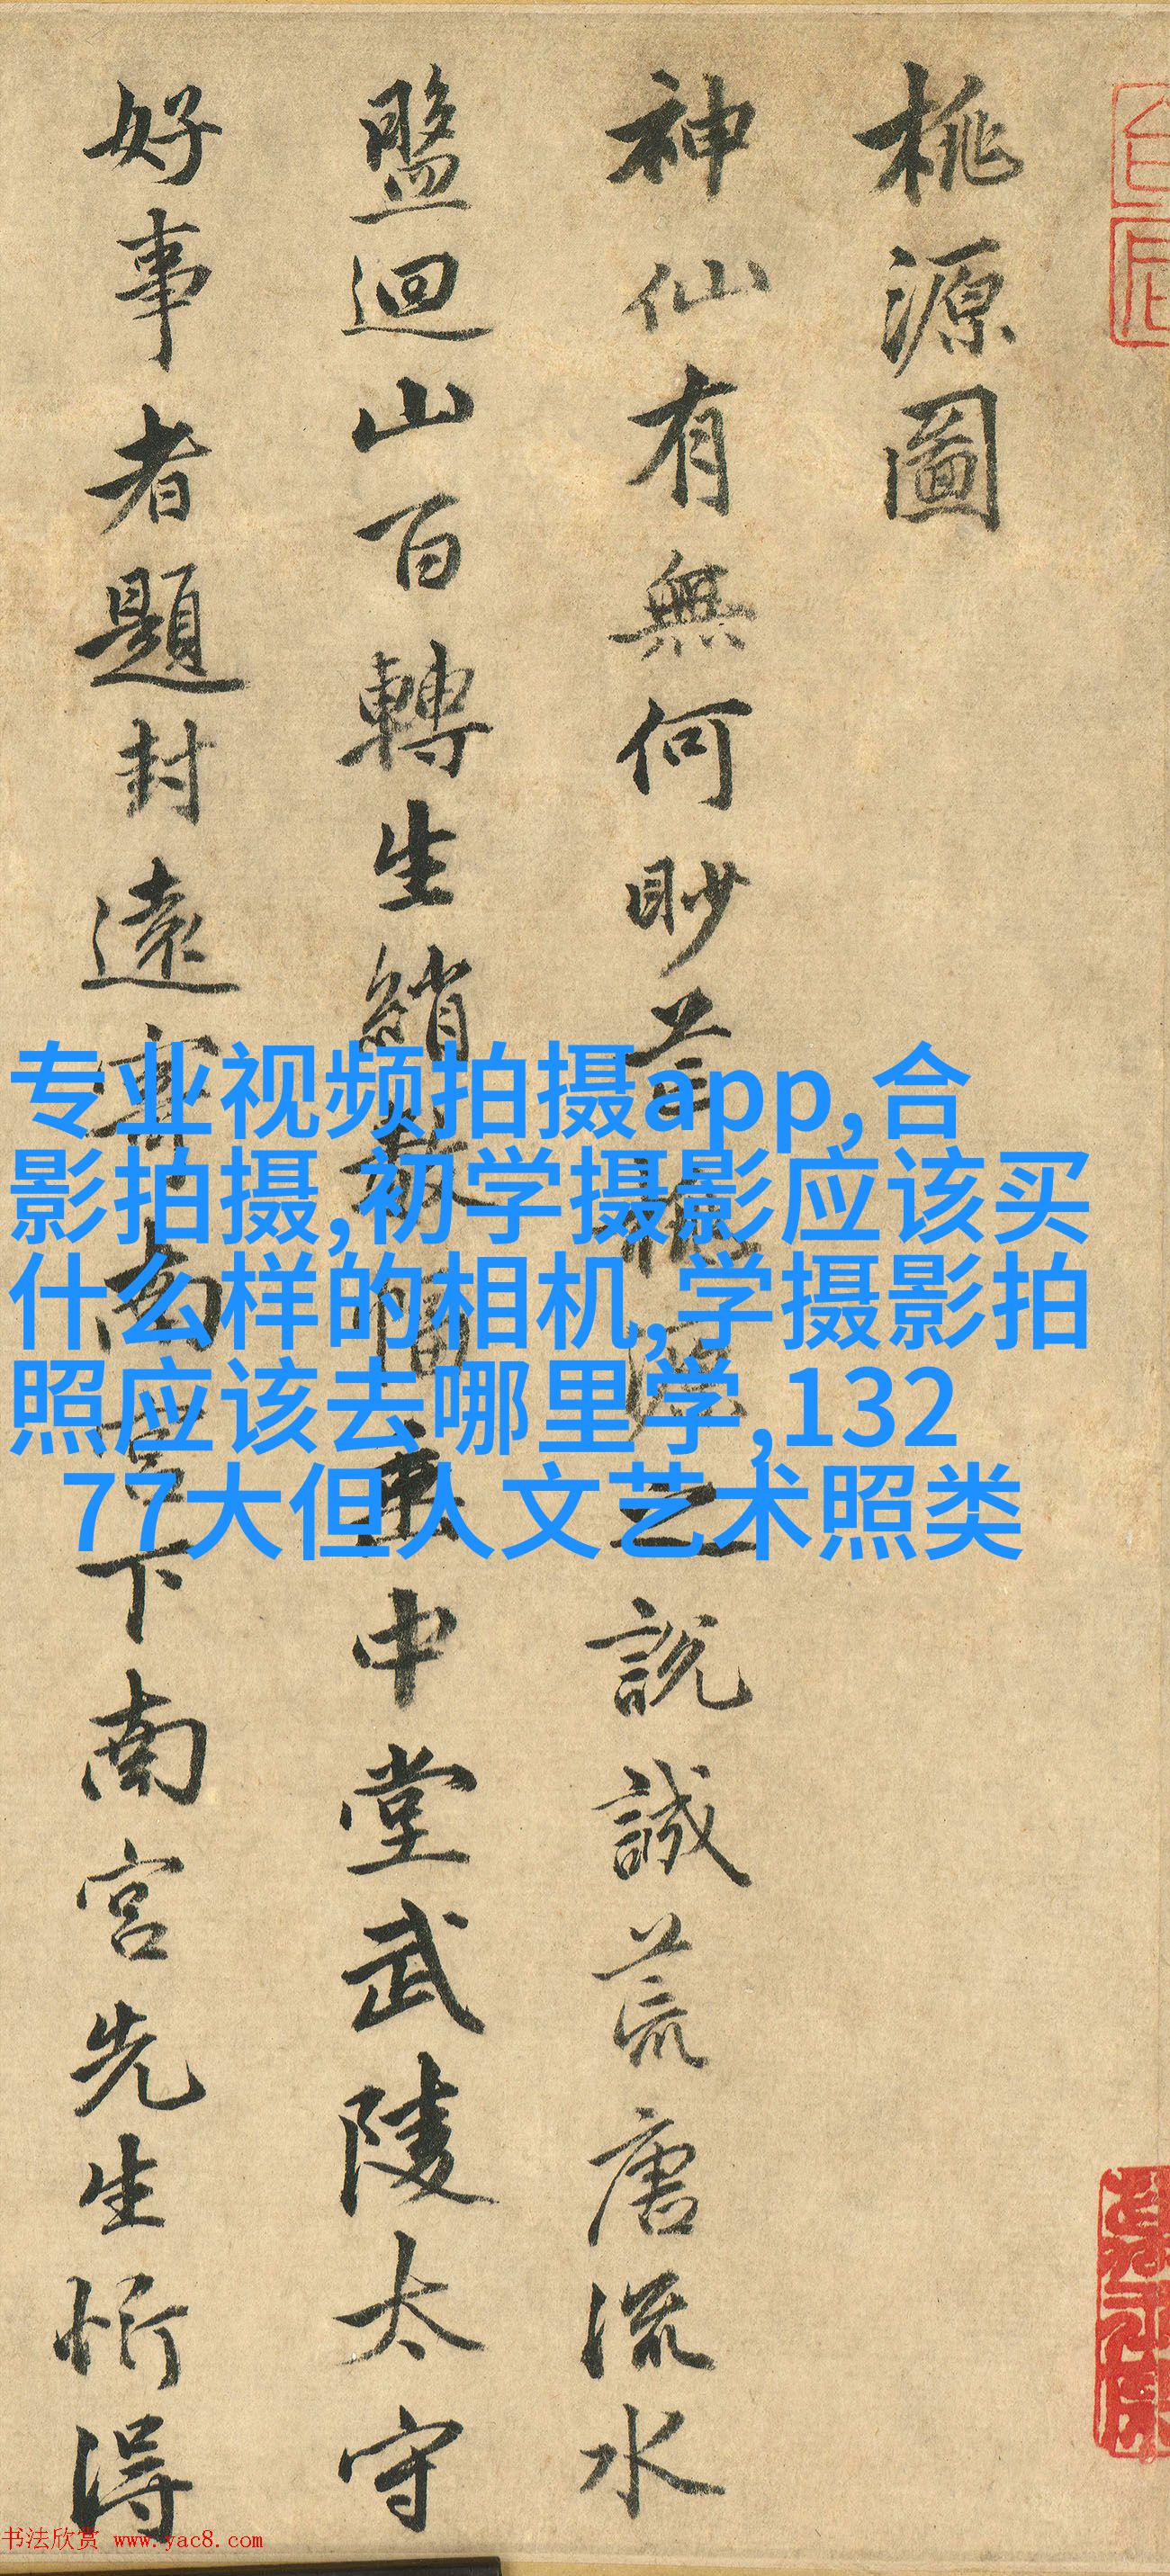 桃源圖
神仙有無何眇芒桃源之說誠荒唐流水
盤迴山百轉生綃數幅垂中堂武陵太守
好事者題封遠寄南宮下南宮先生忻得
专业视频拍摄app,合
影拍摄,初学摄影应该买
什么样的相机,学摄影拍
照应该去哪里学,132
77大但人文艺术照类
书法欣赏 www.yac8.com